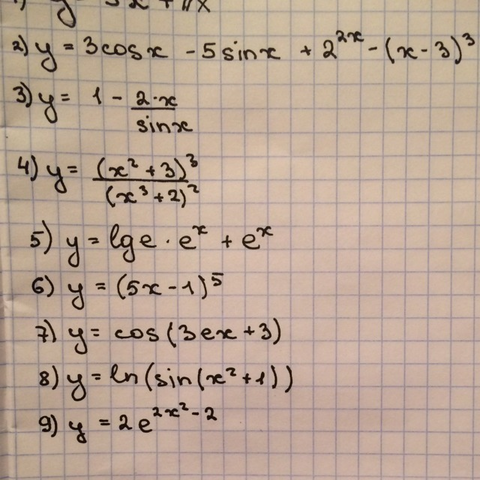 1) y =
2) y = 3cosx - 5sinx + 2^{2x} - (x - 3)^3
3) y = 1 - \frac{2·x}{sinx}
4) y = \frac{(x^2 + 3)^3}{(x^3 + 2)^2}
5) y = lge · e^x + e^x
6) y = (5x - 1)^5
7) y = cos(3ex + 3)
8) y = ln(sin(x^2 + 1))
9) y = 2e^{2x^2 - 2}